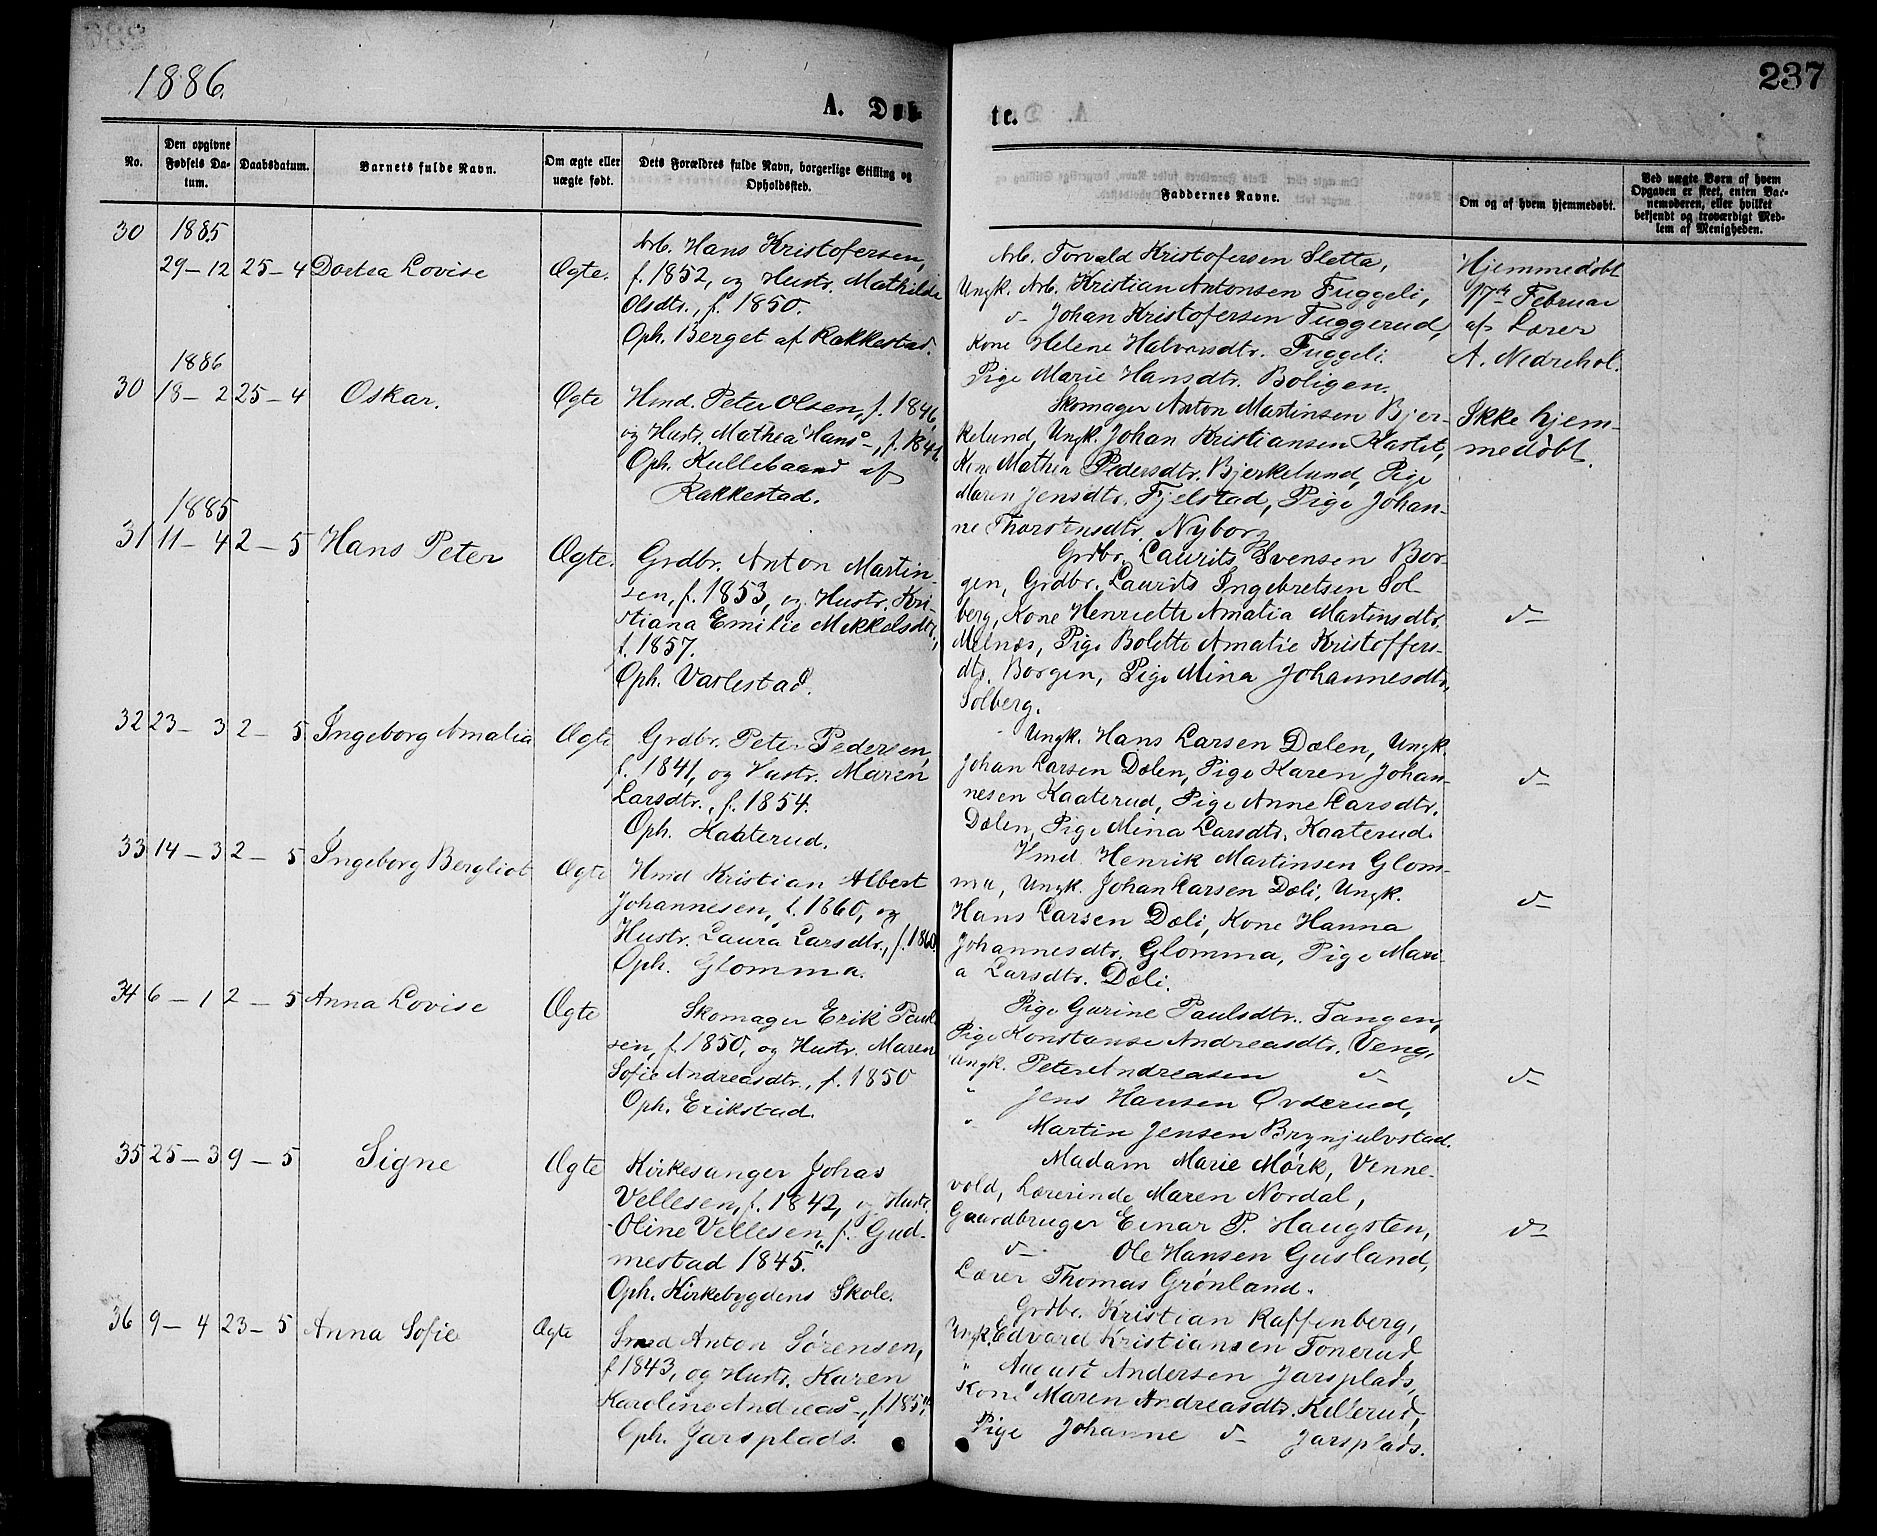 1886.
237
A. Døb-
te.
No.
Den opgivne Fødsels Da-tum.
Daabsdatum.
Barnets fulde Navn.
Om ægte eller uægte født.
Dets Forældres fulde Navn, borgerlige Stilling og Opholdssted.
Faddernes Navne.
Om og af hvem hjemmedøbt.
Ved uægte Børn af hvem Opgaven er skeet, enten Bar-nemoderen, eller hvilket bekjendt og troværdigt Med-lem af Menigheden.
30
1885
29 – 12
25 – 4
Dortea Lovise
Ægte.
Arb. Hans Kristofersen,
f. 1852, og Hustr. Mathilde
Olsdtr., f. 1850.
Oph. Berget af Rakkestad.
Arb. Torvald Kristofersen Sletta,
Ungk. Arb. Kristian Antonsen Fuggeli,
d– Johan Kristofersen Fuggerud,
Kone Helene Halvorsdtr. Fuggeli.
Pige Marie Hansdtr. Boligen.
Hjemmedøbt
17de Februar
af Lærer
A. Nedrehol.
30
1886
18 – 2
25 – 4
Oskar.
Ægte
Hmd. Peter Olsen, f. 1846,
og Hustr. Mathea Hans°–, f. 1841.
Oph. Kullebaand af
Rakkestad.
Skomager Anton Martinsen Bjer-
kelund, Ungk. Johan Kristiansen Kastet,
Kone Mathea Pedersdtr. Bjerkelund, Pige
Maren Jensdtr. Fjelstad, Pige Johan-
ne Thorstensdtr. Nyborg
Ikke hjem-
medøbt.
31
1885
11 – 4
2 – 5
Hans Peter
Ægte.
Grdbr. Anton Martin-
sen, f. 1853, og Hustr. Kri-
stiana Emilie Mikkelsdtr.,
f. 1857.
Oph. Varlestad.
Grdbr. Laurits Svensen Bor-
gen, Grdbr. Laurits Ingebretsen Sol-
berg, Kone Henriette Amalia Martinsdtr.
Melnæs, Pige Bolette Amatie Kristoffers-
dtr. Borgen, Pige Mina Johannesdtr.
Solberg.
d–
32
23 – 3
2 – 5
Ingeborg Amalia
Ægte
Grdbr. Peter Pedersen,
f. 1841, og Hustr. Maren
Larsdtr., f. 1854.
Oph. Kaaterud.
Ungk. Hans Larsen Dælen, Ungk.
Johan Larsen Dælen, Pige Karen Johan-
nesen Kaaterud, Pige Anne Larsdtr.
Dælen, Pige Mina Larsdtr. Kaaterud.
d–
33
14 – 3
2 – 5
Ingeborg Bergliot
Ægte
Hmd Kristian Albert
Johannesen, f. 1860, og
Hustr. Laura Larsdtr., f. 1860
Oph. Glomma.
Hmd. Henrik Martinsen Glom-
ma, Ungk. Johan Larsen Dæli, Ungk.
Hans Larsen Dæli, Kone Hanna
Johannesdtr. Glomma, Pige Mari-
a Larsdtr. Dæli.
d–
34
6 – 1
2 – 5
Anna Lovise
Ægte
Skomager Erik Paul-
sen, f. 1850, og Hustr. Maren
Sofie Andreasdtr., f. 1850
Oph. Erikstad.
Pige Gurine Paulsdtr. Tangen,
Pige Konstanse Andreasdtr. Veng,
Ungk. Peter Andreasen d–
" Jens Hansen Ovderud,
" Martin Jensen Brynjulvstad.
d–
35
25 – 3
9 – 5
Signe
Ægte
Kirkesanger Johas
Vellesen, f. 1842, og Hustr.
Oline Vellesen, f. Gud-
mestad 1845.
Oph. Kirkebygdens Skole.
Madam Marie Mørk, Venne-
vold, Lærerinde Maren Nordal,
Gaardbruger Einar P. Haugsten,
d– Ole Hansen Gusland,
Lærer Thomas Grønland.
d–
36
9 – 4
23 – 5
Anna Sofie
Ægte
Smed Anton Sørensen,
f 1843, og Hustr. Karen
Karoline Andreas°–, f. 185
Oph. Jarsplads.
Grdbr. Kristian Raffenberg,
Ungk. Edvard Kristiansen Tonerud
" August Andersen Jarsplads,
Kone Maren Andreasdtr. Killerud,
Pige Johanne d– Jarsplads.